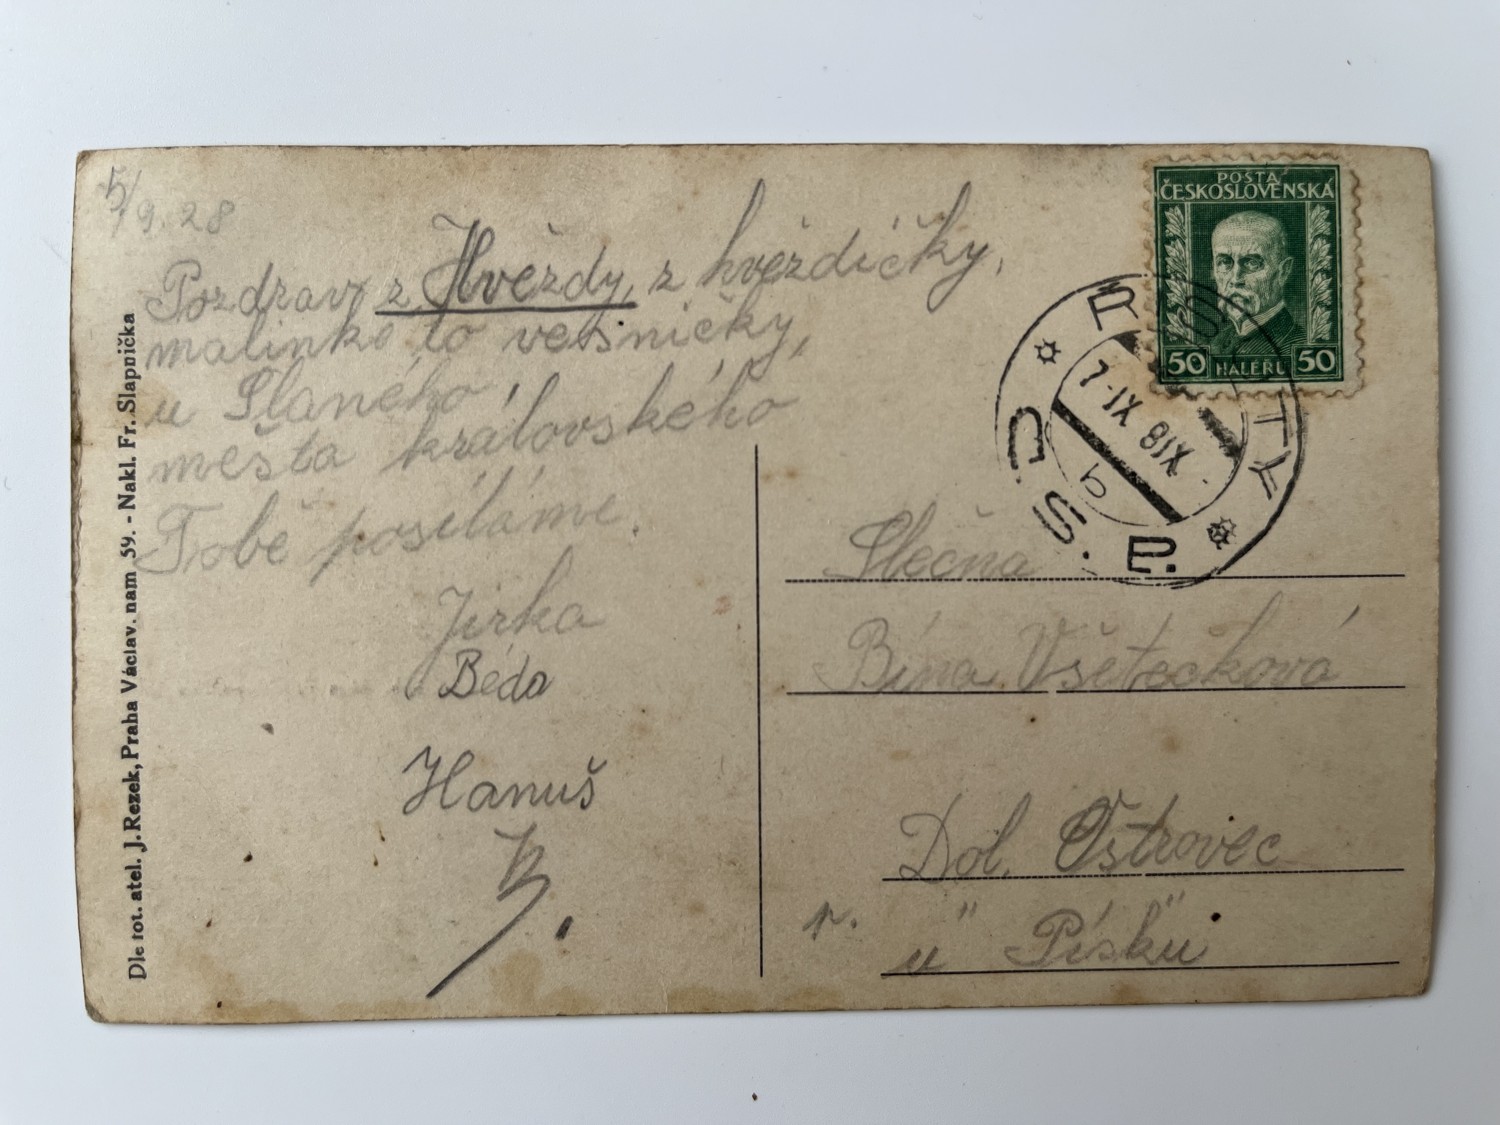 5/9. 28
Pozdrav z Hvězdy, z hvězdičky,
malinké to vesničky,
u Slaného,
města královského
Tobě posíláme.
Jirka
Béda
Hanuš
B.
Dle fot. atel. J. Rezek, Praha Václav. nam 59. - Nakl. Fr. Slapnička
POŠTA
ČESKOSLOVENSKÁ
50 HALÉŘŮ 50
7-IX 8IX
b
Slečna
Bína Všetečková
Dol. Ostrovec
p. "
u Písku"